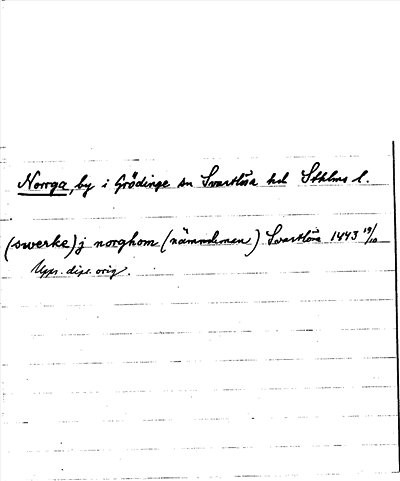 Norrga, by i Grödinge sn Svartlösa hd Sthlms l.
(swerke) j norghom (nämndeman) Svartlösa 1443 19/10
Upps. dipl. orig.